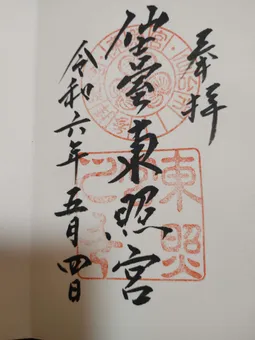 奉拝
仙臺東照宮
令和六年五月四日
東照